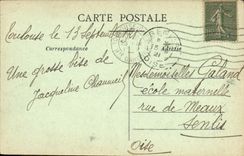 CARTE POSTALE
Correspondance
Adresse
Toulouse le 13 Septembre
Une grosse bise de
Jacqueline
Mesdemoiselles Galand
école maternelle
rue de Meaux
Senlis
Oise